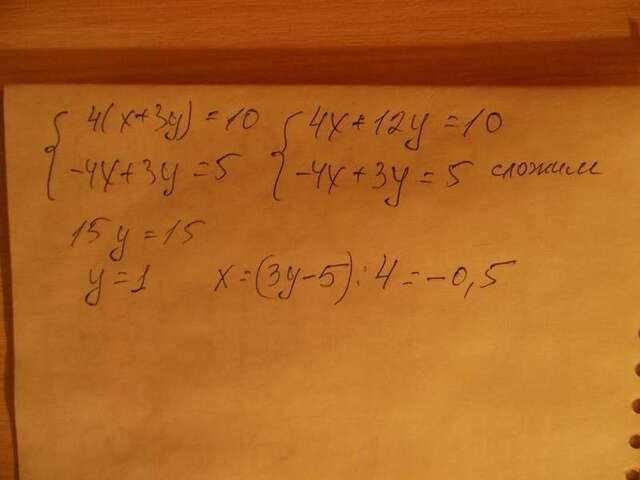 4(x+3y)=10 4x+12y=10
-4x+3y=5 -4x+3y=5 сложим
15y=15
y=1 x=(3y-5):4=-0,5